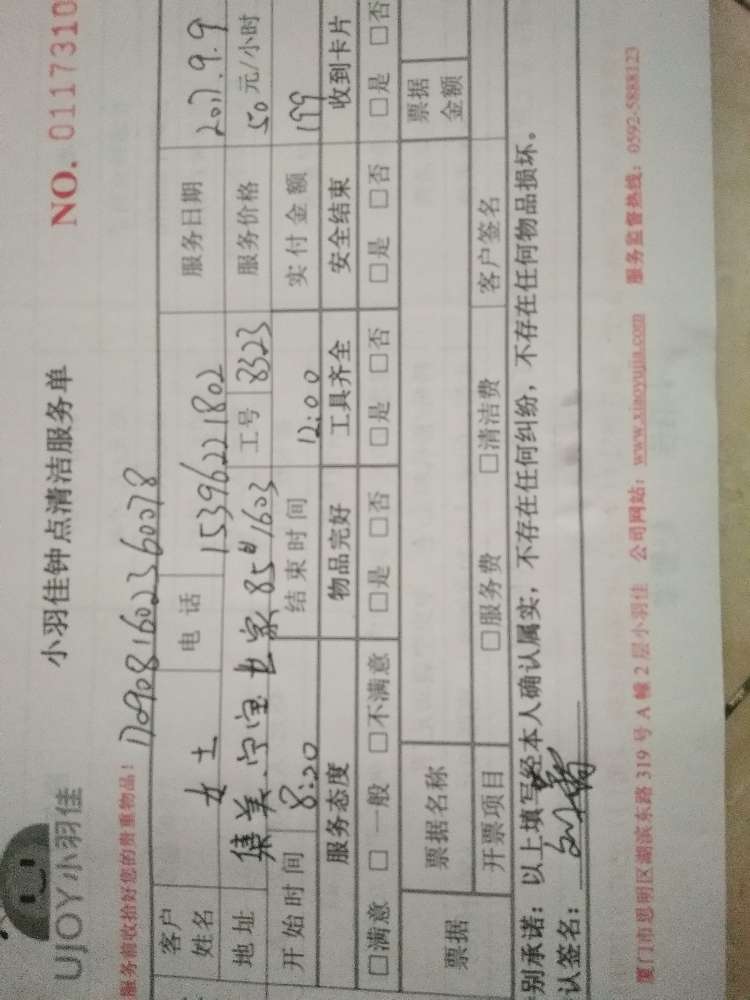 UJOY小羽佳
小羽佳钟点清洁服务单
NO. 0117310
服务前收拾好您的贵重物品! 1709081602360078
客户姓名 女士 电话 15396221802 服务日期 2017.9.9
地址 集美.宁宝世家85#1603 工号 8323 服务价格 50元/小时
开始时间 8:20 结束时间 12:00 实付金额 199
服务态度 物品完好 工具齐全 安全结束 收到卡片
□满意 □一般 □不满意 □是 □否 □是 □否 □是 □否 □是 □否
票据 票据名称 票据金额
开票项目 □服务费 □清洁费 客户签名
别承诺:以上填写经本人确认属实,不存在任何纠纷,不存在任何物品损坏。
认签名:
厦门市思明区湖滨东路319号A幢2层小羽佳 公司网站:www.xiaoyujia.com 服务监督热线:0592-5888123